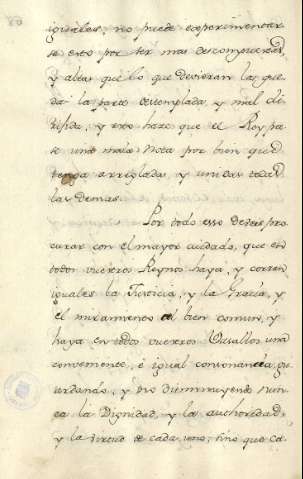 iguales, no puede experimentar
se esto por ser mas descompuestas,
y altas que lo que devieran las que
da la parte destemplada, y mal di
rigida, y esto hace que el Rey pa
se una mala nota por bien que
tenga arregladas, y unidas todas
las demas.
Por todo esso deveis pro
curar con el mayor cuidado, que en
todos vuestros Reynos haya, y corran
iguales la Justicia, y la Gracia, y
el miramiento al bien comun, y
haya en todos vuestros Vasallos una
conveniente, é igual consonancia
y no disminuyendo nun
ca la Dignidad, y la authoridad,
y la virtud de cada uno, sino que ca